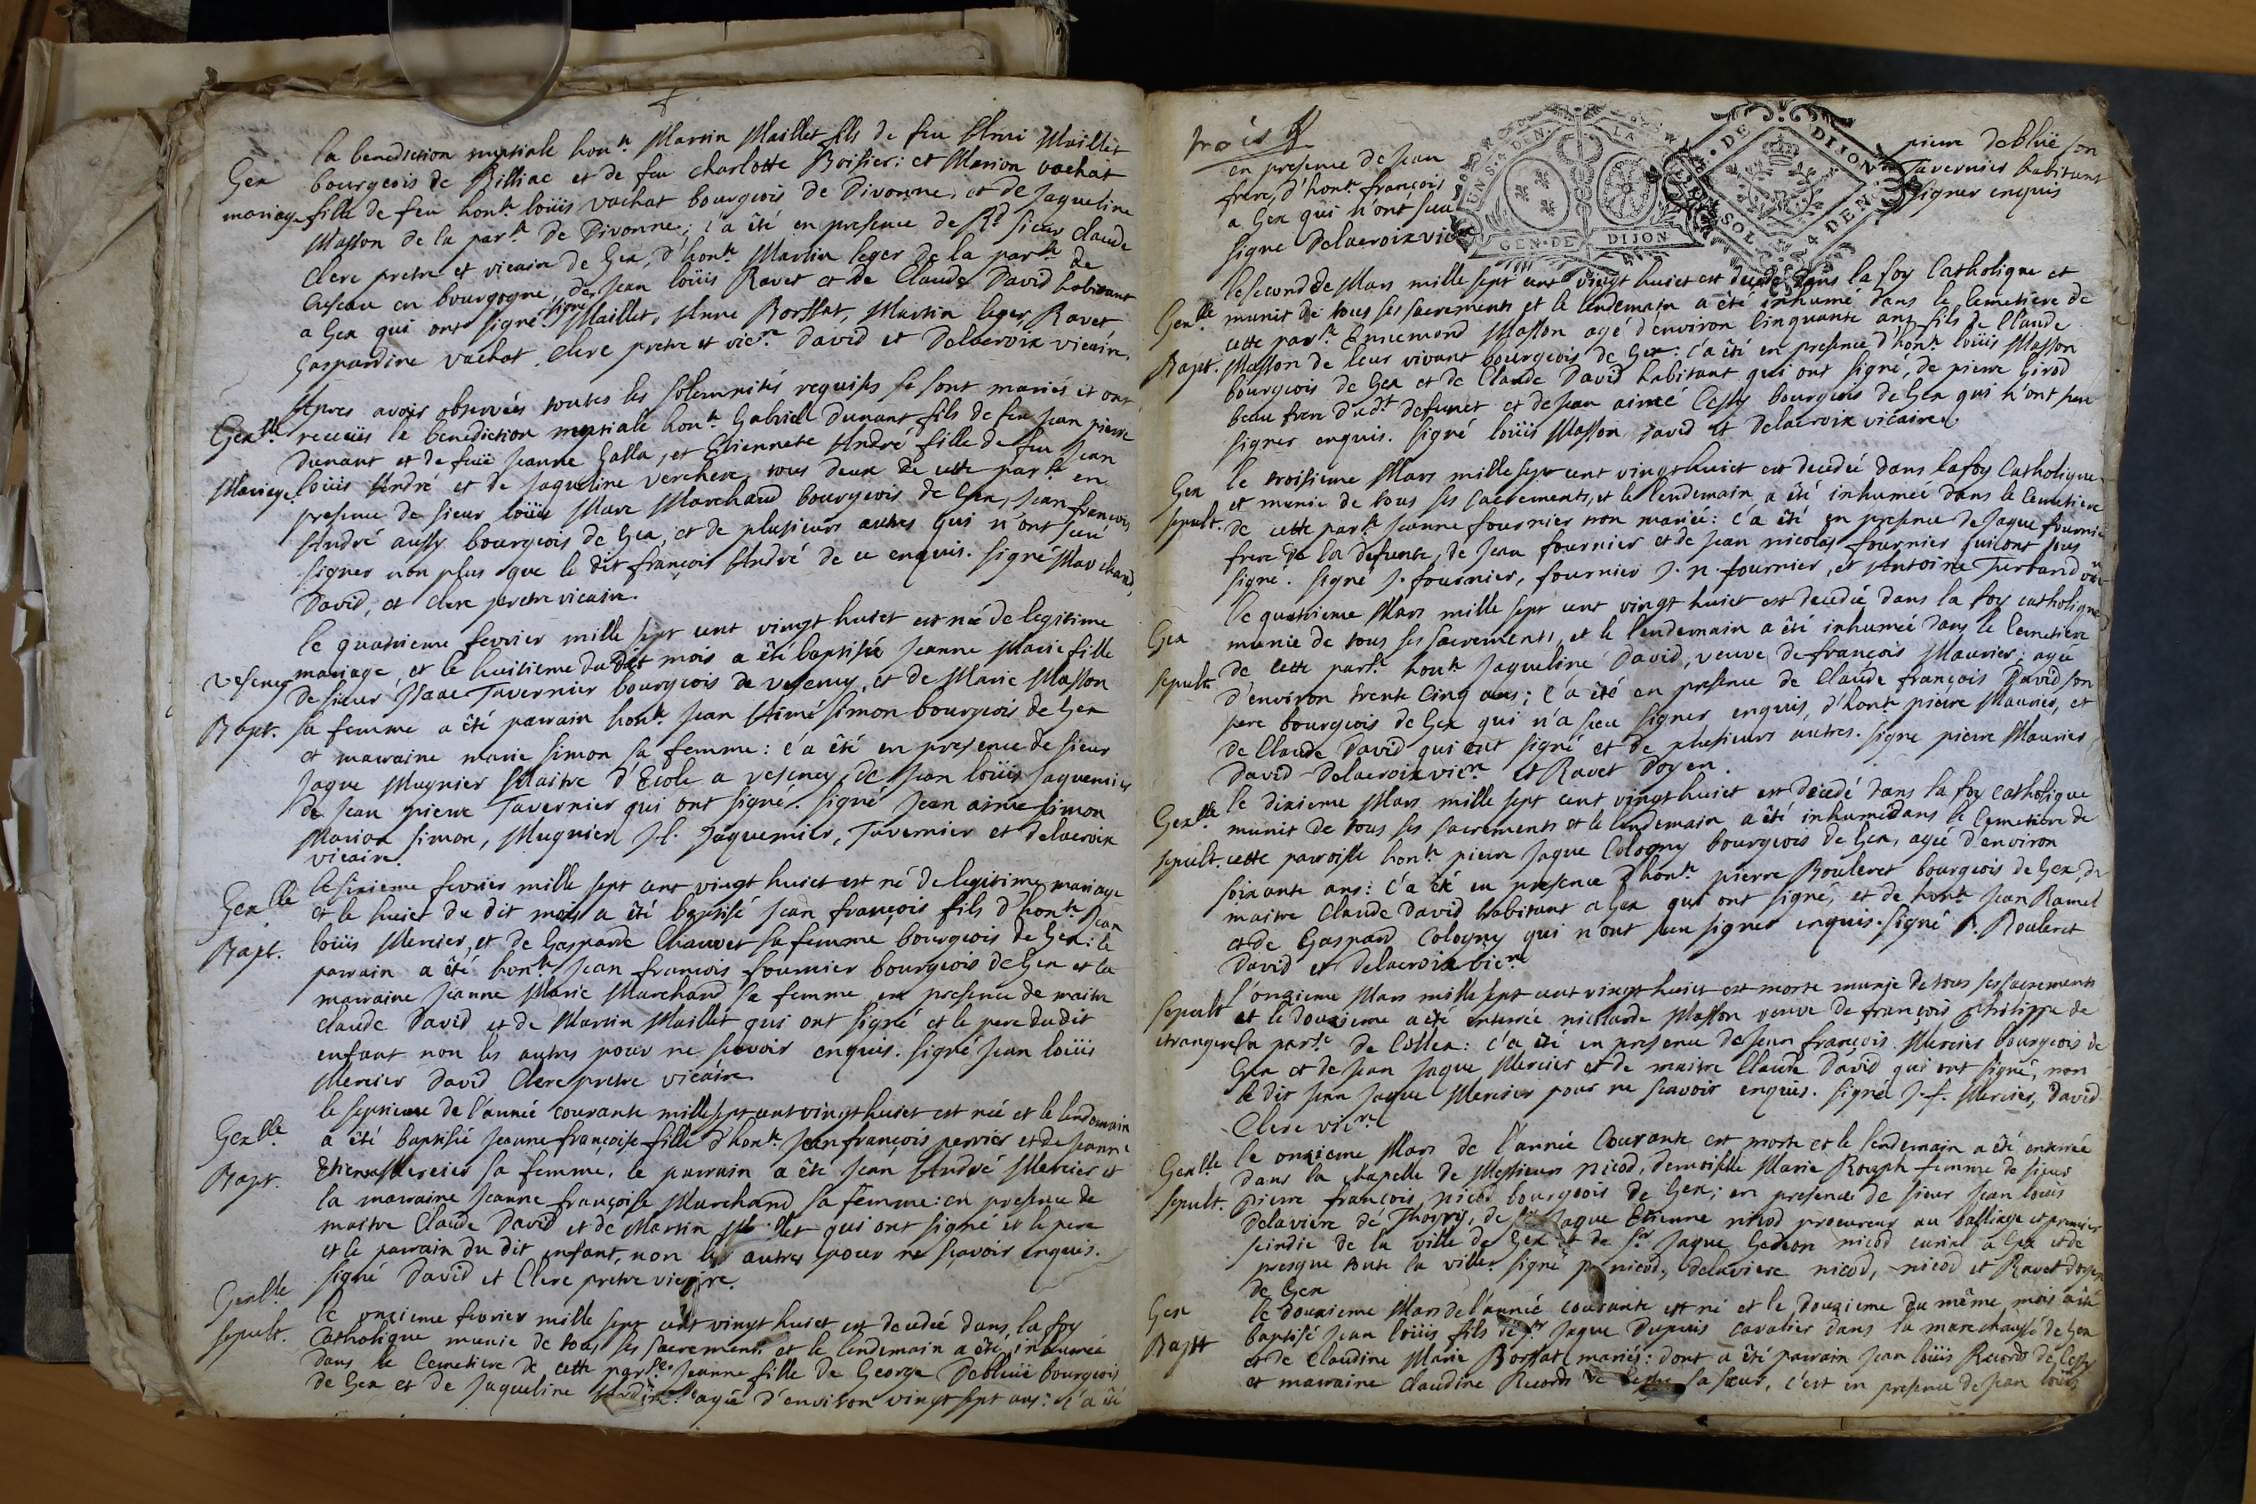 la benediction nuptiale hon.le Martin Maillet fils de feu Henri Maillet
Gex
bourgeois de Billiac et de feu charlotte Boisier: et Marion vachat
mariage
fille de feu hon.le loüis vachat bourgeois de Divonne, et de Jaqueline
Masson de la par.se de Divonne; c'a êté en presence de R.d sieur claude
Clerc pretre et vicaire de Gex, d'hon.le Martin leger de la par.se de
en bourgogne, de Jean loüis Ravet et de Claude David habitant
a Gex qui ont signé. signé Maillet, Anne Borssat, Martin leger, Ravet
Gaspardine vachat, Clerc pretre et vic.re David et Delacroix vicaire.
Apres avoir observées toutes les solemnités requises se sont mariés et ont
Gex.lle
receüs la benediction nuptiale hon.le Gabriel Dunant fils de feu Jean pierre
Dunant et de feüe Jeanne Galla, et Etiennete André fille de feu Jean
Mariage
loüis André et de Jaqueline Verchere, tous deux de cette par.se en
presence de sieur loüis Marc Marchand bourgeois de Gex, Jean françois
André aussy bourgeois de Gex, et de plusieurs autres qui n'ont sceu
signer non plus que le dit françois André de ce enquis. signé Marchand,
David, et Clerc pretre vicaire.
le quatrieme fevrier mille sept cent vingt huict est née de legitime
Vesency
mariage, et le huitieme du dit mois a êté baptisée Jeanne Marie fille
de sieur Isaac Tavernier bourgeois de vesency, et de Marie Masson
Bapt.
sa femme a êté parrain hon.le Jean Aimé Simon bourgeois de Gex
et marraine marie Simon sa femme: c'a êté en presence de sieur
Jaque Mugnier Maitre d'Ecole a vesency, de Jean loüis Jaquemier
de Jean pierre Tavernier qui ont signé. signé Jean aimé simon
Marion simon, Mugnier J.l. Jaquemier, Tavernier et Delacroix
vicaire.
Gex.lle
le sixieme fevrier mille sept cent vingt huict est né de legitime mariage
et le huict du dit mois a êté baptisé Jean françois fils d'hon.le Jean
Bapt.
loüis Mercier, et de Gasparde Chauvet sa femme bourgeois de Gex: le
parrain a êté hon.le Jean francois fournier bourgeois de Gex et la
marraine Jeanne Marie Marchand sa femme en presence de maitre
claude David et de Martin Maillet qui ont signé et le pere du dit
enfant non les autres pour ne scavoir enquis. signé Jean loüis
Mercier David Clerc pretre vicaire.
le septieme de l'année courante mille sept cent vingt huict est née et le lendemain
Gex.lle
a êté baptisée Jeanne françoise fille d'hon.le Jean françois perrier et de Jeanne
Bapt.
Mercier sa femme. le parrain a êté Jean André Mercier et
la marraine Jeanne françoise Marchand sa femme: en presence de
maitre Claude David et de Martin Maillet qui ont signé et le pere
et le parrain du dit enfant, non les autres pour ne scavoir enquis.
signé David et Clerc pretre vicaire.
Gex.lle
le onzieme fevrier mille sept cent vingt huict est decedée dans la foy
sepult.
Catholique munie de tous ses sacrements et le lendemain a êté inhumée
dans le Cemetiere de cette par.se Jeanne fille de George Deblüe bourgeois
de Gex et de Jaqueline agée d'environ vingt sept ans: c'a êté
trois
en presence de Jean pierre Deblüe son
frere, d'hon.le françois Tavernier habitant
a Gex qui n'ont sceu signer enquis
signé Delacroix vic
UN S. 4 DEN. LA
GEN. DE DIJON
DE DIJON
SOL 4 DEN.
le second de Mars mille sept cent vingt huict est decedé dans la foy Catholique et
Gex.lle
munit de tous ses sacrements et le lendemain a êté inhumé dans le Cemetiere de
cette par.se Ennemond Masson agé d'environ cinquante ans fils de Claude
Bapt.
Masson de leur vivant bourgeois de Gex: c'a êté en presence d'hon.le loüis Masson
bourgeois de Gex et de Claude David habitant qui ont signé, de pierre Girod
beau frere dud.t defunct et de Jean aimé Cessy bourgeois de Gex qui n'ont sceu
signer enquis. signé loüis Masson, David et Delacroix vicaire.
Gex
le troisieme Mars mille sept cent vingt huict est decedée dans la foy Catholique
et munie de tous ses sacrements, et le lendemain a êté inhumée dans le Cemetiere
sepult.
de cette par.se Jeanne fournier non mariée: c'a êté en presence de Jaque fournier
frere de la defunte, de Jean fournier et de Jean nicolas fournier qui ont tous
signé. signé J. fournier, fournier J. n. fournier, et Antoine
le quatrieme Mars mille sept cent vingt huict est decedée dans la foy catholique
Gex
munie de tous ses sacrements, et le lendemain a êté inhumée dans le Cemetiere
sepult.
de cette par.se hon.le Jaqueline David, veuve de françois Maurier, agée
d'environ trente cinq ans; c'a êté en presence de Claude françois David son
pere bourgeois de Gex qui n'a sceu signer enquis, d'hon.le pierre Maurier, et
de Claude David qui ont signé et de plusieurs autres. signé pierre Maurier
David Delacroix vic.re et Ravet Doyen.
le dixieme Mars mille sept cent vingt huict est decedé dans la foy catholique
Gex.lle
munit de tous ses sacrements et le lendemain a êté inhumé dans le Cemetiere de
sepult.
cette parroisse hon.le pierre Jaque Cologny bourgeois de Gex, agé d'environ
soixante ans: c'a êté en presence d'hon.le pierre Bouleret bourgeois de Gex, de
maitre Claude David habitant a Gex qui ont signé, et de hon.le Jean Ramel
et de Gaspard Cologny qui n'ont sceu signer enquis. signé P. Bouleret
David et Delacroix vic.re
l'onzieme Mars mille sept cent vingt huict est morte munie de tous ses sacrements
sepult
et le douzieme a êté enterrée nicolarde Masson veuve de françois Philippe de
etrangere
la par.se de Collex: c'a êté en presence de Jean françois Mercier bourgeois de
Gex et de Jean Jaque Mercier et de maitre Claude David qui ont signé, non
le dit Jean Jaque Mercier pour ne scavoir enquis. signé J. f. Mercier, David
Clerc vic.re
Gex.lle
le onzieme Mars de l'année Courante est morte et le lendemain a êté enterrée
dans la chapelle de Messieurs Nicod, demoiselle Marie Rouph femme de sieur
sepult.
Pierre françois nicod bourgeois de Gex; en presence de sieur Jean loüis
Delaviere de Thoyry, de Jaque Etienne nicod procureur au balliage et premier
scindic de la ville de Gex et de S.r Jaque Gedeon nicod a Gex et de
presque toute la ville. signé p. nicod, delaviere nicod, nicod et Ravet doyen
de Gex
Gex
le douzieme Mars de l'année courante est né et le douzieme du même mois a êté
Bapt
baptisé Jean loüis fils de S.r Jaque Dupuis cavalier dans la marechaussé de Gex
et de Claudine Marie Borssat mariés: dont a êté parrain Jean loüis Records de Cessy
et marraine claudine Records de sa sœur, c'est en presence de Jean loüis